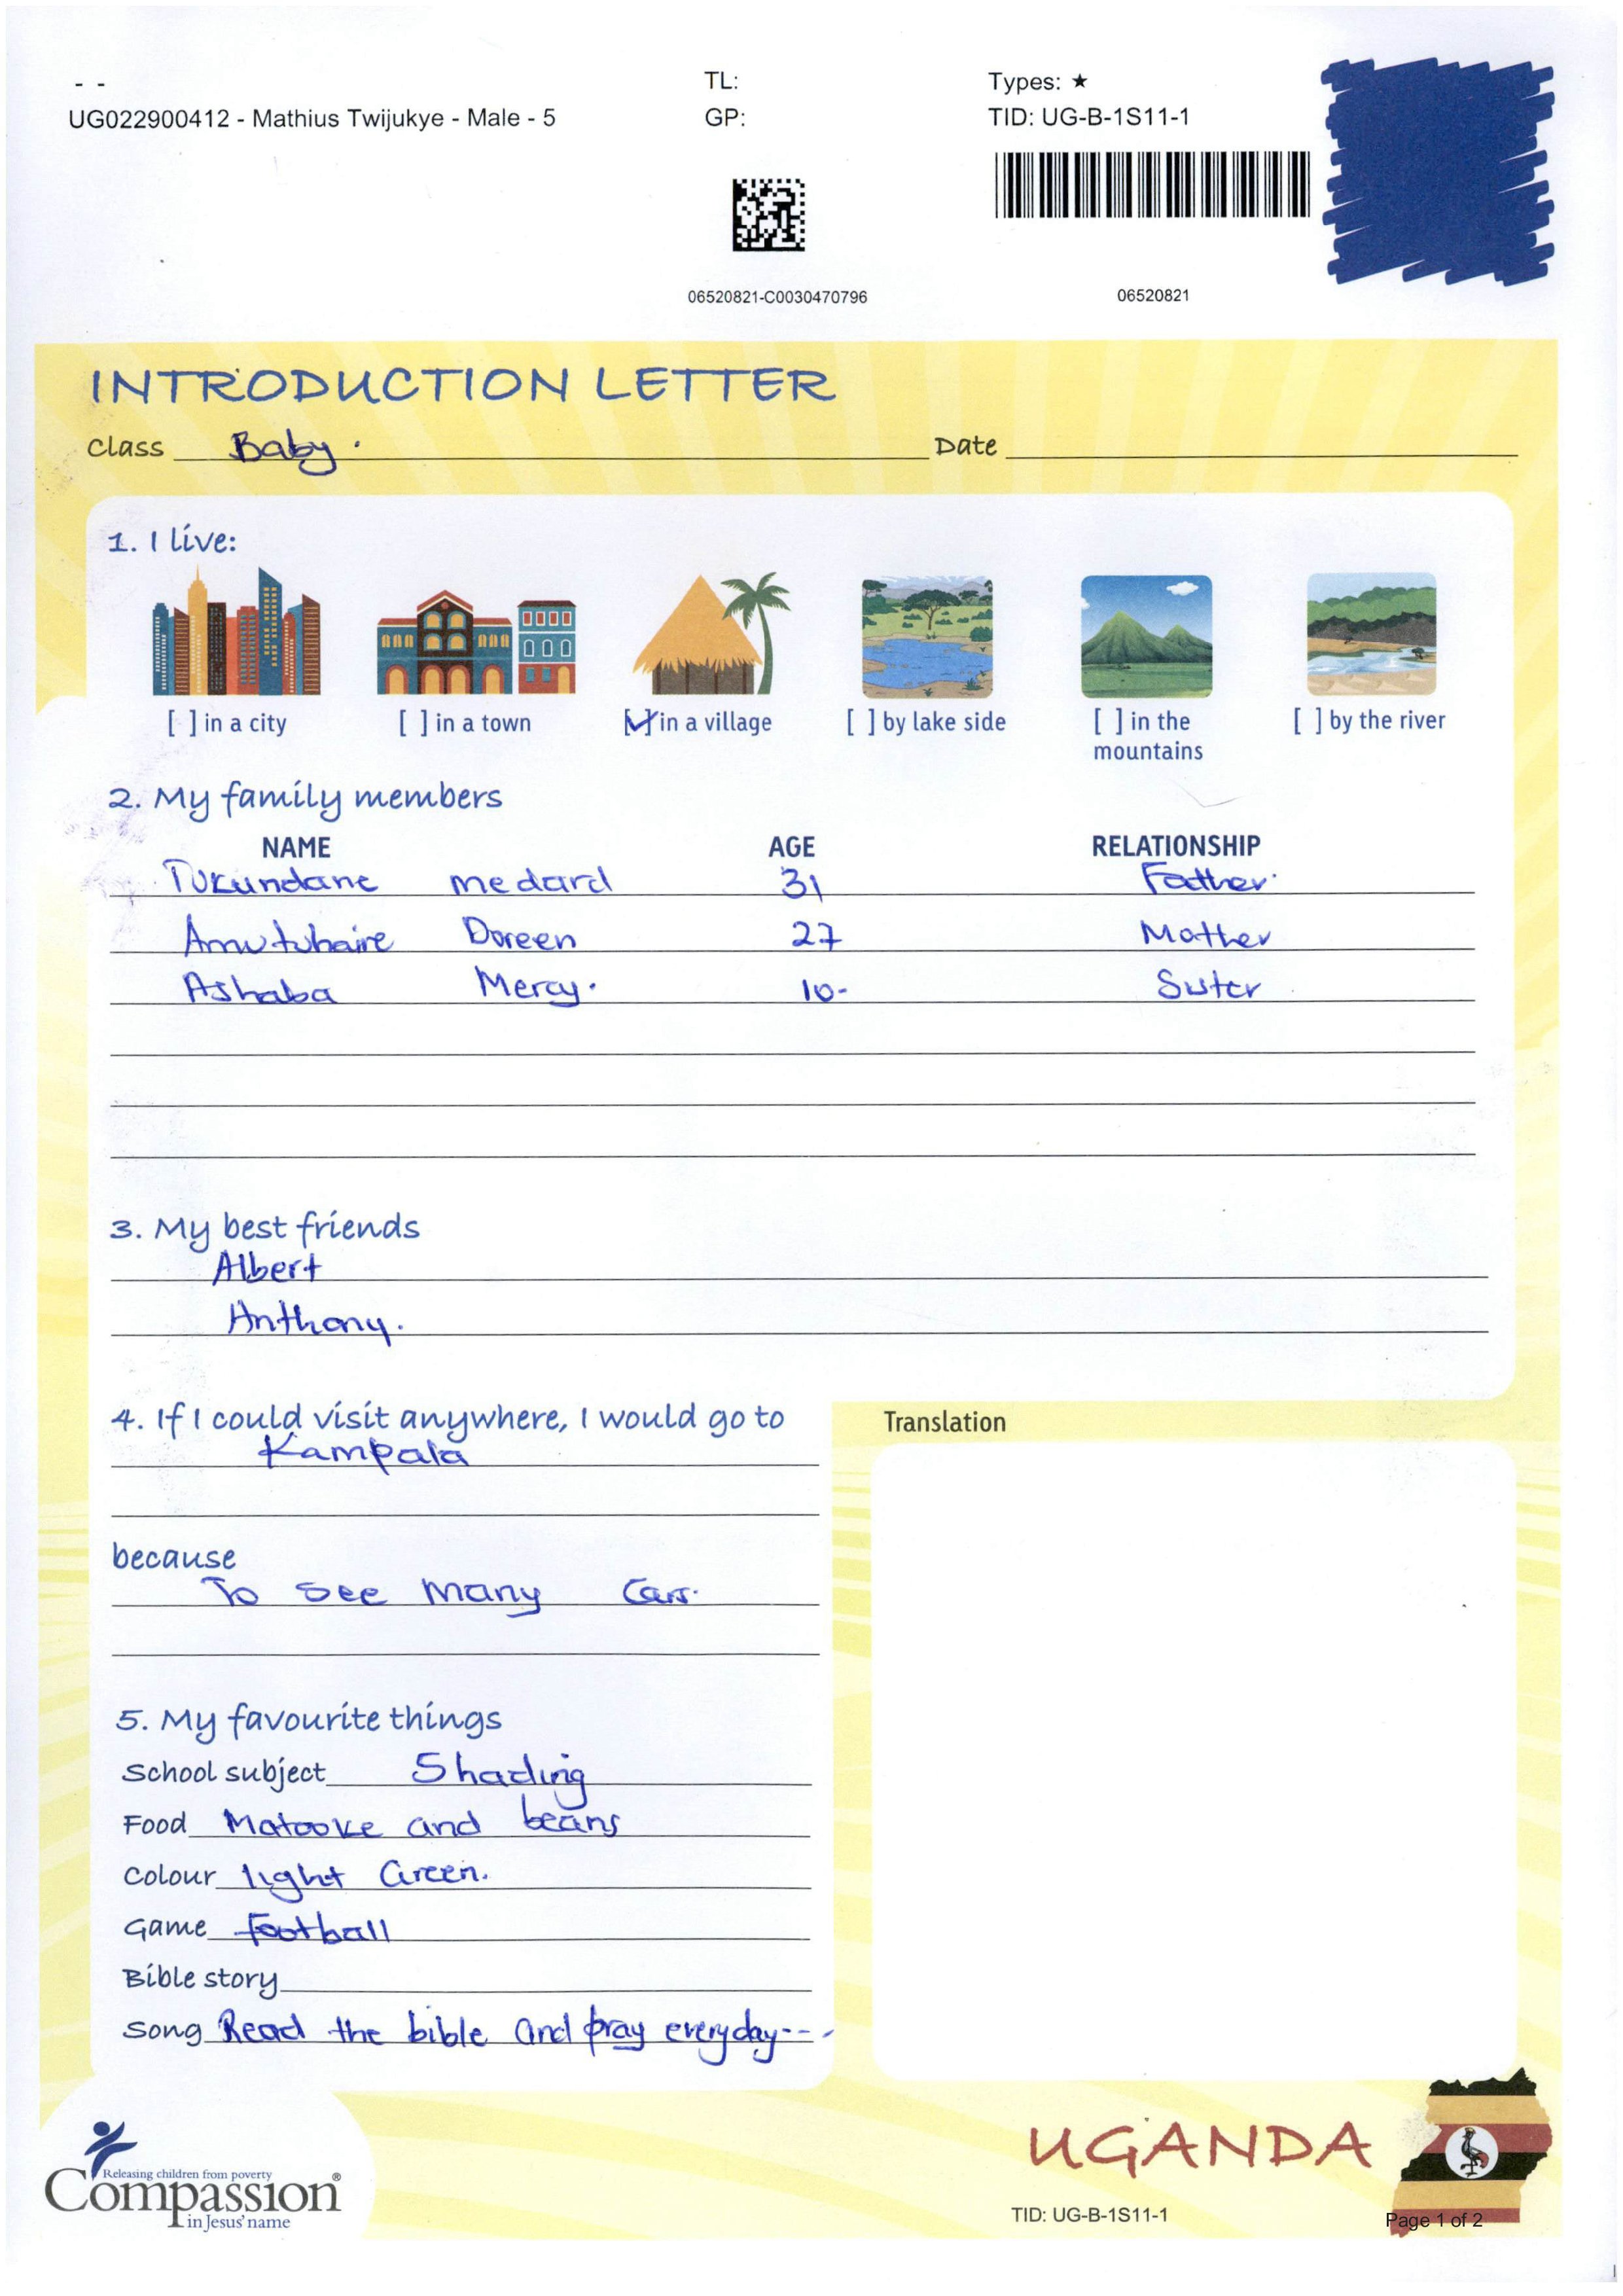 - -
UG022900412 - Mathius Twijukye - Male - 5
TL:
GP:
Types: ★
TID: UG-B-1S11-1
06520821-C0030470796
06520821
INTRODUCTION LETTER
Class Baby.
Date
1. I live:
[ ] in a city
[ ] in a town
[✓] in a village
[ ] by lake side
[ ] in the
mountains
[ ] by the river
2. My family members
NAME AGE RELATIONSHIP
Tukundane medard 31 Father
Amutuhaire Doreen 27 Mother
Ashaba Mercy. 10- Sister
3. My best friends
Albert
Anthony.
4. If I could visit anywhere, I would go to
Kampala
because
To see many Cars.
5. My favourite things
School subject Shading
Food Matooke and beans
Colour light Green.
Game Football
Bible story
Song Read the bible and pray everyday---
Translation
Releasing children from poverty
Compassion®
in Jesus' name
UGANDA
TID: UG-B-1S11-1
Page 1 of 2